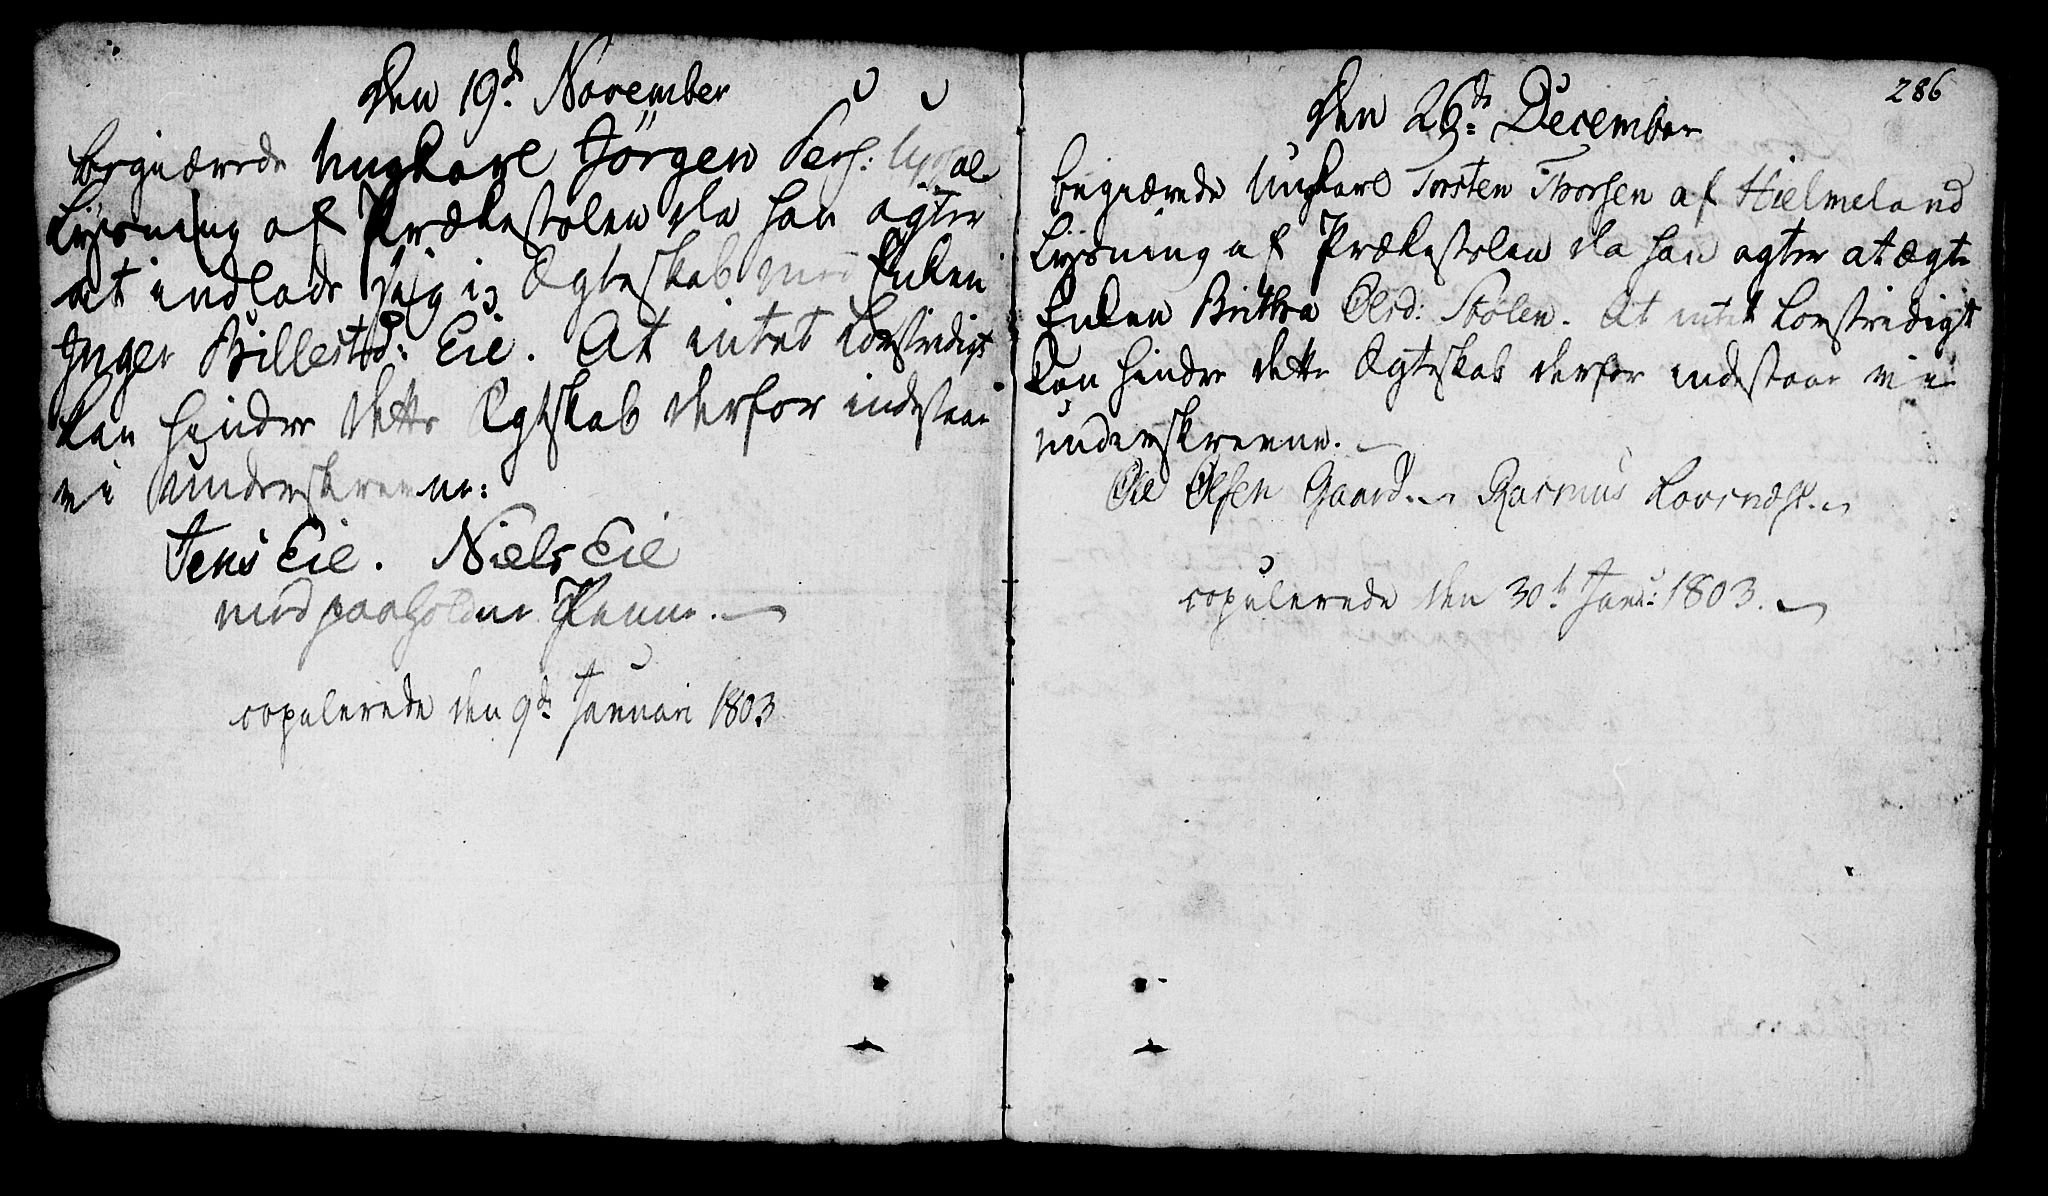 Den 19de November
begiærede Ungkarl Jörgen Pers:
Lysning af Prækestolen da han agter
at indlade sig i Ægteskab med Enken
Inger Billestd: Eie. At intet Lovstridigt
kan hindre dette Ægteskab derfor indestaae
vi underskrevne:
Jens Eie. Niels Eie
med paaholdne Penne.
copulerede den 9de Januari 1803
286
Den 26de December
begiærede Ungkarl Torsten Thorsen af Hielmeland
Lysning af Prækestolen da han agter at ægte
Enken Brithra Olsd: Stölen. At intet Lovstridigt
kan hindre dette Ægteskab derfor indestaae vi
underskrevne.
Ole Olsen Gaard. Rasmus
copulerede den 30te Janu: 1803.